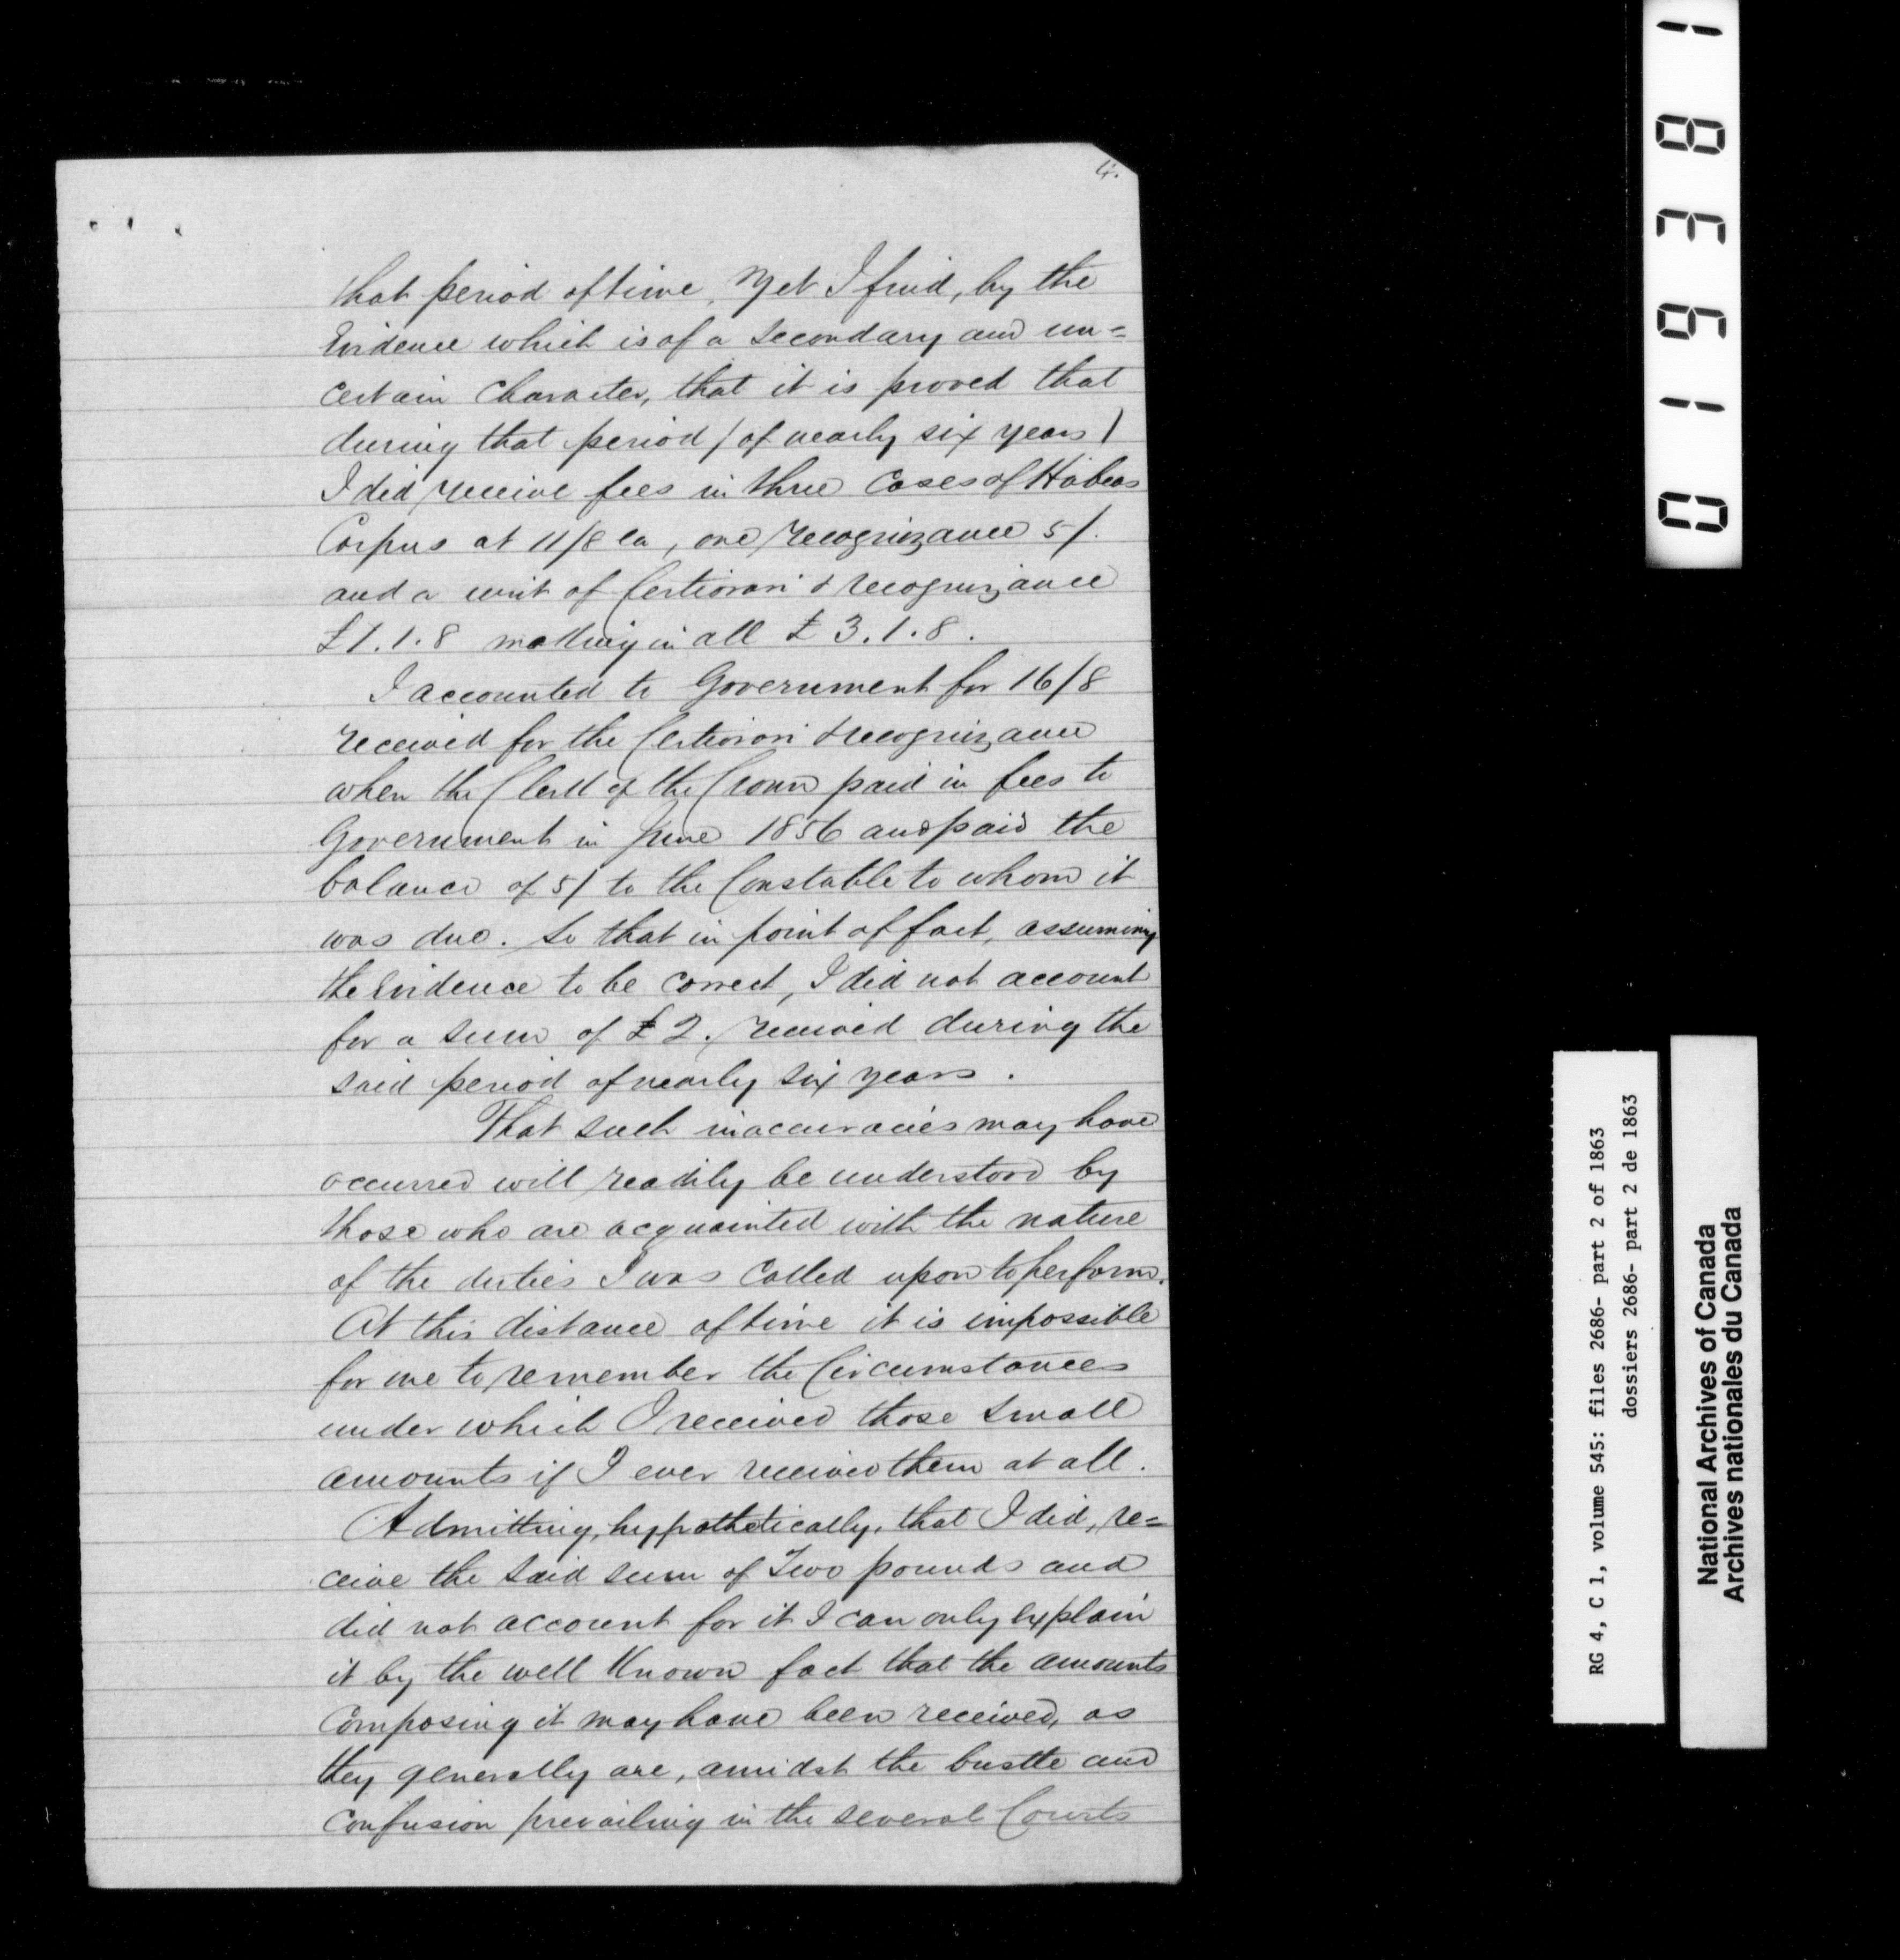 4.
that period of time. Yet I find, by the
Evidence which is of a Secondary and un=
certain Character, that it is proved that
during that period / of nearly six years /
I did receive fees in three Cases of Habeas
Corpus at 11/8 ea, one recognizance 5/.
and a writ of Certiorari & recognizance
£1.1.8 making in all £3.1.8.
I accounted to Government for 16/8
received for the Certiorari & recognizance
when the Clerk of the Crown paid in fees to
Government in June 1856 and paid the
balance of 5/ to the Constable to whom it
was due. So that in point of fact, assuming
the Evidence to be correct, I did not account
for a sum of £2. received during the
said period of nearly six years.
That such inaccuracies may have
occurred will readily be understood by
those who are acquainted with the nature
of the duties I was Called upon to perform.
At this distance of time it is impossible
for me to remember the Circumstances
under which I received those small
amounts if I ever received them at all.
Admitting, hypothetically, that I did, re=
ceive the said sum of Two pounds and
did not account for it I can only explain
it by the well Known fact that the amounts
Composing it may have been received, as
they generally are, amidst the bustle and
Confusion prevailing in the several Courts
019381
RG 4, C 1, volume 545: files 2686- part 2 of 1863
dossiers 2686- part 2 de 1863
National Archives of Canada
Archives nationales du Canada